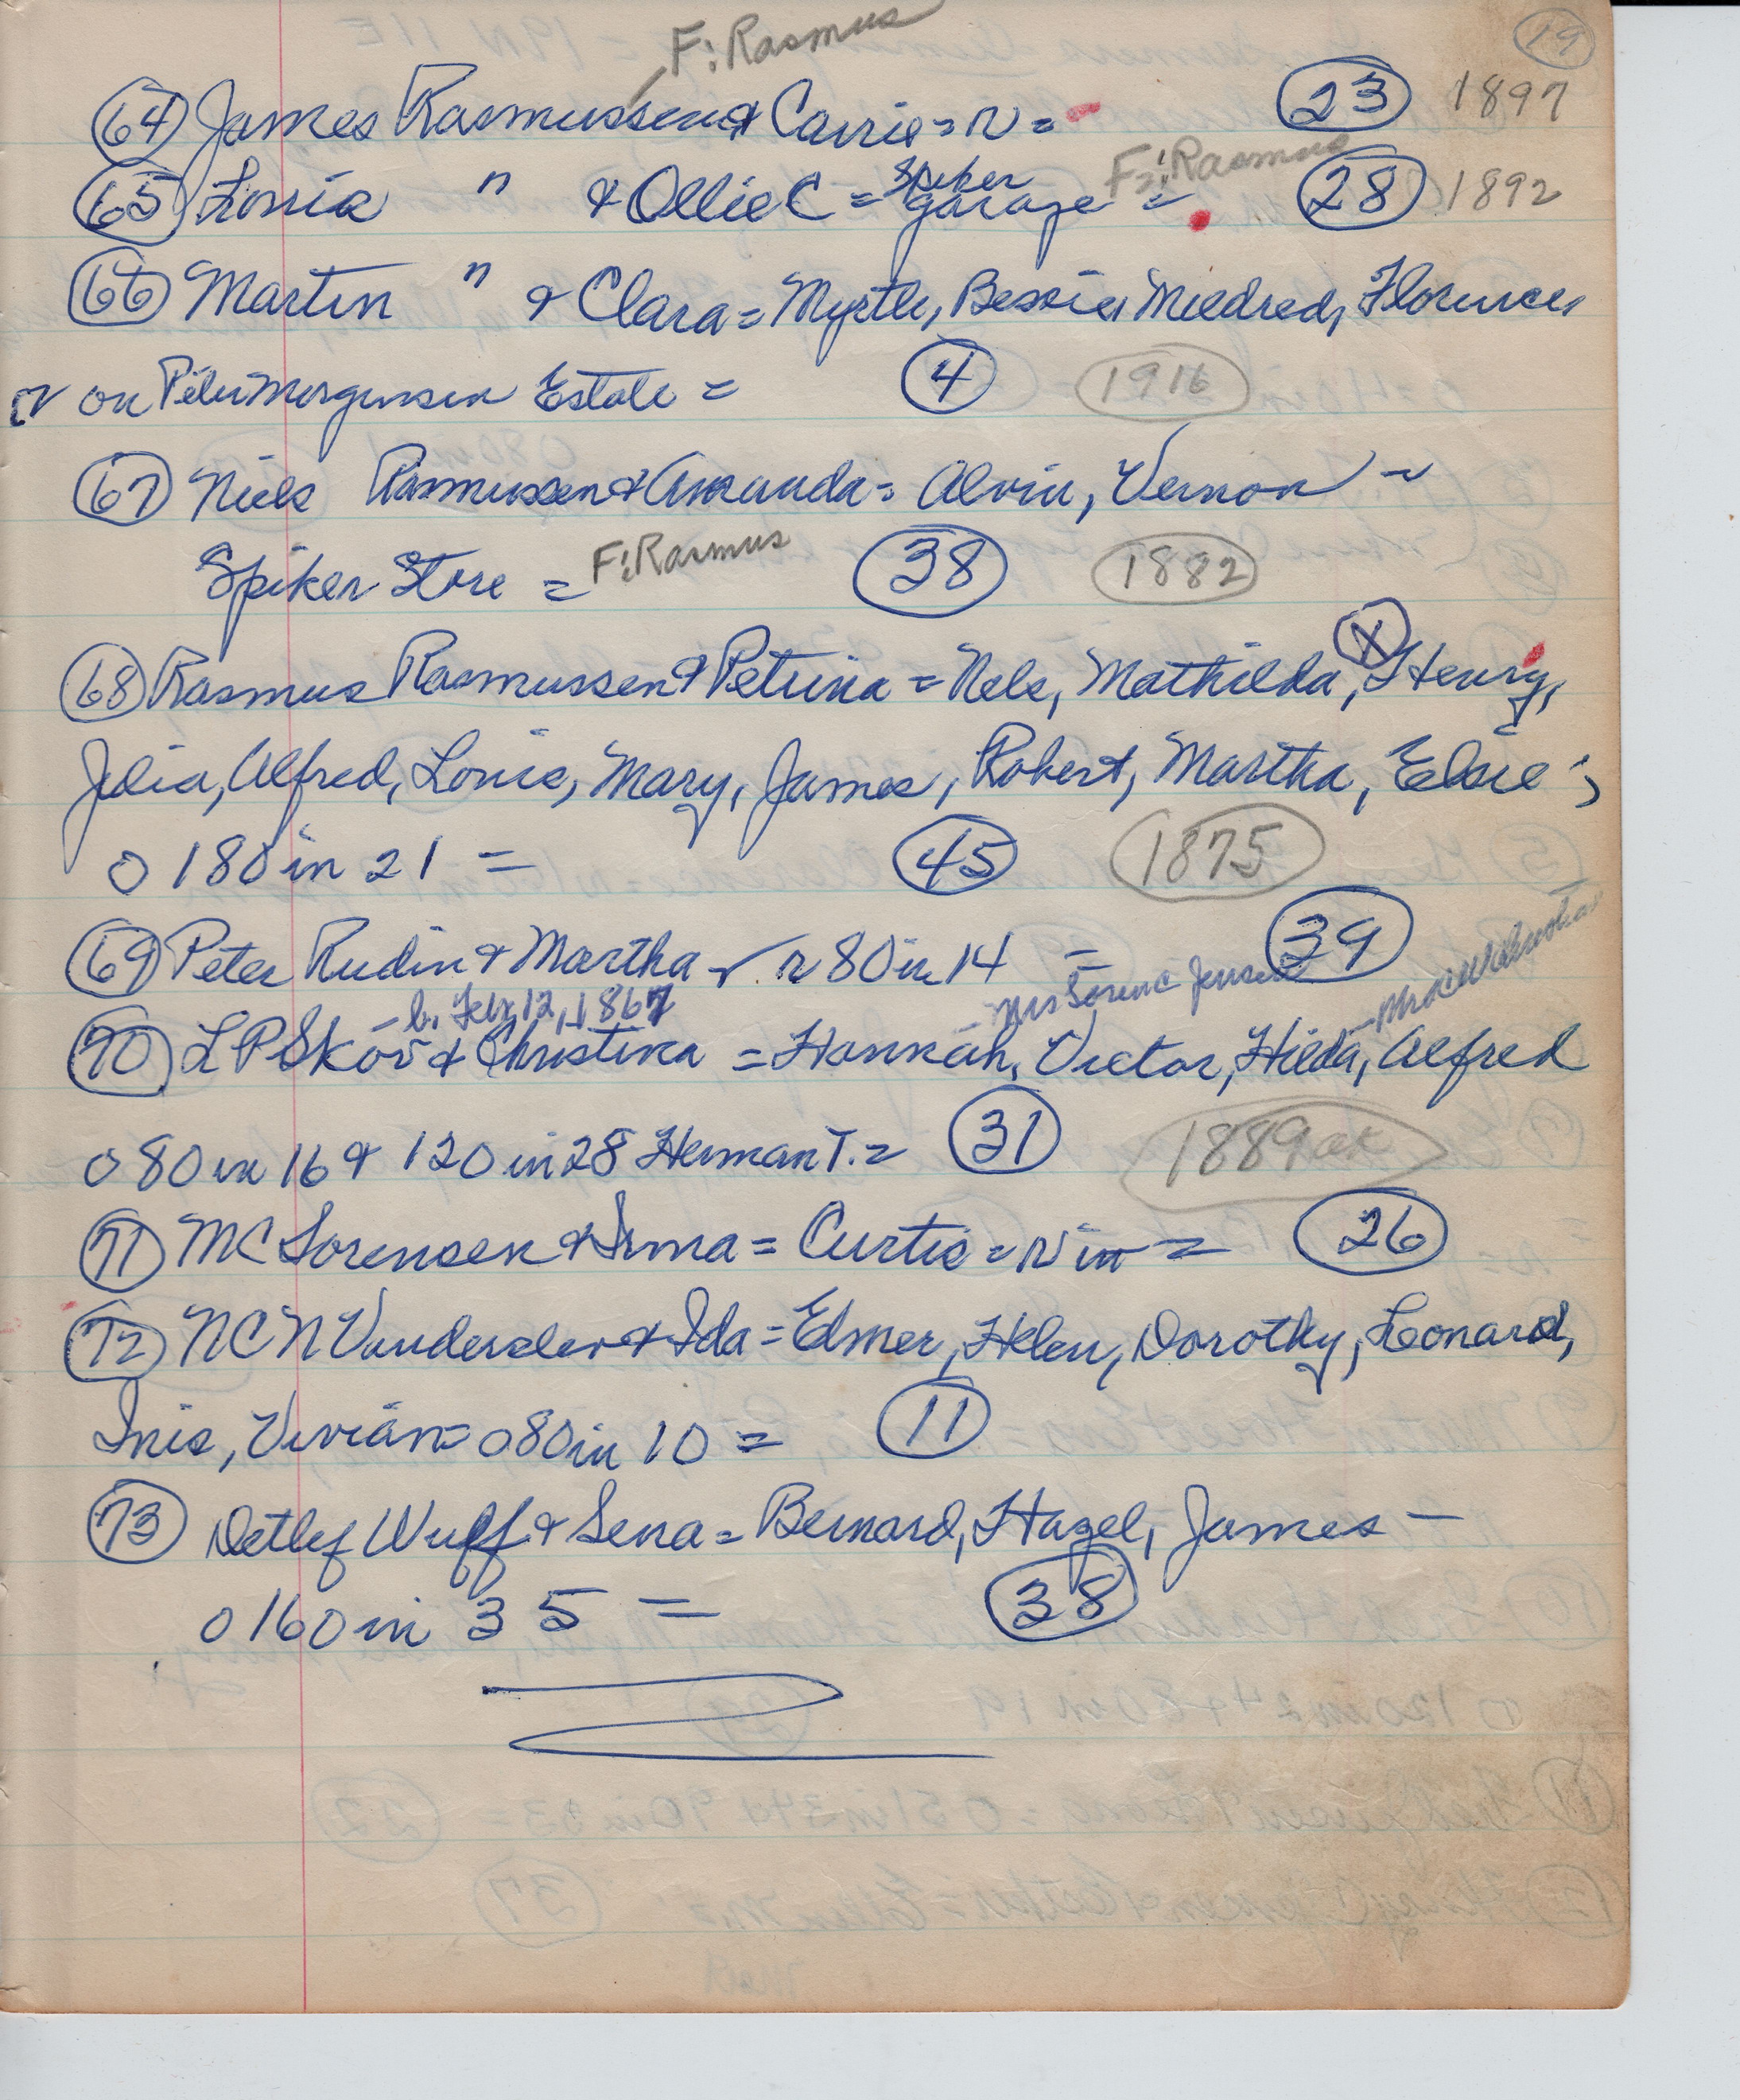 19
F: Rasmus
64 James Rasmussen & Carrie = r = 23 1897
65 Louis " & Ollie C = Spiker garage = F: Rasmus 28 1892
66 Martin " & Clara = Myrtle, Bessie, Mildred, Florence,
r on Peter Morgensen Estate = 4 1916
67 Niels Rasmussen & Amanda = Alvin, Vernon -
Spiker Store = F: Rasmus 38 1882
68 Rasmus Rasmussen & Petrina = Nels, Mathilda, X Henry,
Julia, Alfred, Louis, Mary, James, Robert, Martha, Elsie;
0 180 in 21 = 45 1875
69 Peter Rudin & Martha - r 80 in 14 = 39
- b. Feb, 12, 1867 Mrs Soren C Jensen
70 L P Skov & Christina = Hannah, Victor, Hilda, Alfred
0 80 in 16 & 120 in 28 Herman T. = 31 1889 ok
71 M C Sorensen & Irma = Curtis = r in = 26
72 N C N Vandersler & Ida = Elmer, Helen, Dorothy, Leonard,
Inis, Vivian = 0 80 in 10 = 11
73 Detlef Wulff & Sena = Bernard, Hazel, James -
0 160 in 35 = 38